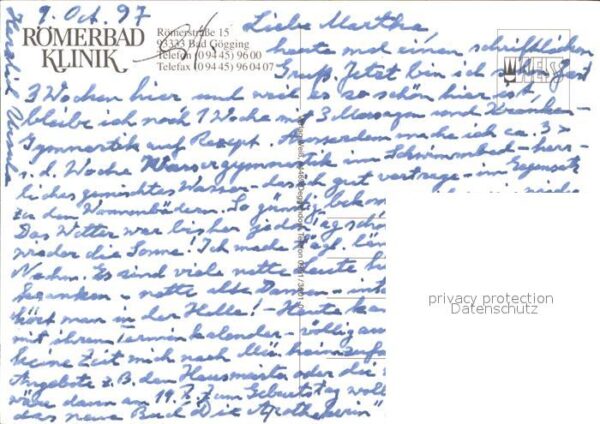 9. Oct. 97
RÖMERBAD
KLINIK
Römerstraße 15
93333 Bad Gögging
Telefon (0 94 45) 96 00
Telefax (0 94 45) 96 04 07
Liebe Martha
heute mal einen schriftlichen
Gruß. Jetzt bin ich schon fast
3 Wochen hier und weil es so schön hier ist,
bleibe ich noch 1 Woche mit 3 Massagen und Kranken-
Gymnastik auf Rezept. Ausserdem mache ich ca. 3 x
i. d. Woche Wassergymnastik im Schwimmbad - herr-
liches gemischtes Wasser - das ich gut vertrage - im Gegensatz
zu den Wannenbädern. So günstig bekom
Das Wetter war bisher jeden Tag schö
wieder die Sonne! Ich mache tägl.
Nachm. Es sind viele nette Leute hi
nette alte Damen -
hört man in der Halle! - Heute
mit ihrem Terminkalender - völlig
keine Zeit mich nach
Angebote z.B. den Hausmeister oder die
wäre dann am 19. z. zum Geburtstag
das neue Bad Die Apothekerin
Herzlich Ursula
privacy protection
Datenschutz